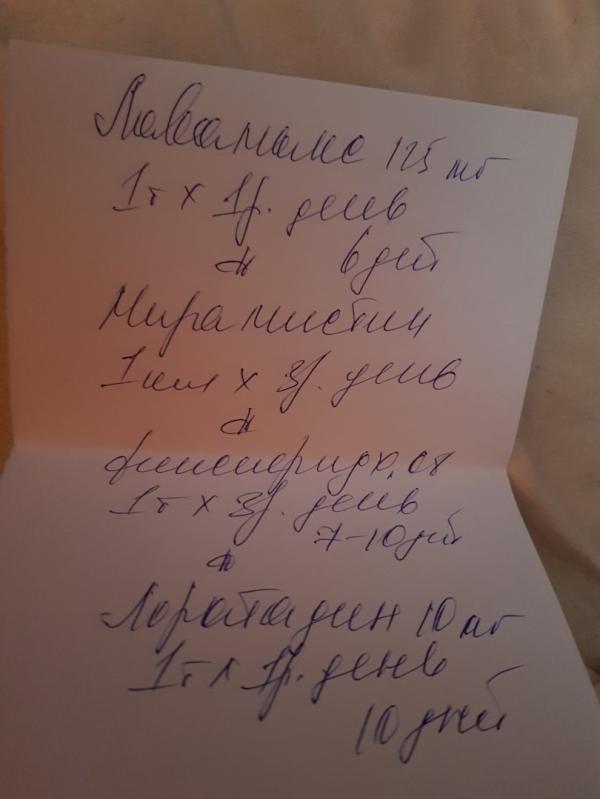 Лавомакс 125 мг
1т х 1р. день
# 6 дней
Мирамистин
1 х 3р. день
#
1т х 3р. день
7-10 дней
#
Лоратадин 10 мг
1т х 1р. день
10 дней